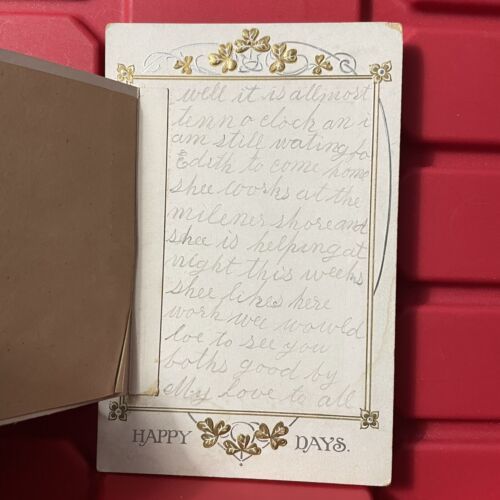 well it is allmost
tenn o clock an i
am still wating fo
Edith to come home
shee works at the
milener shore and
shee is helping at
night this weeks
shee likes here
work wee wowuld
love to see you
boths good by
My Love to all
HAPPY DAYS.